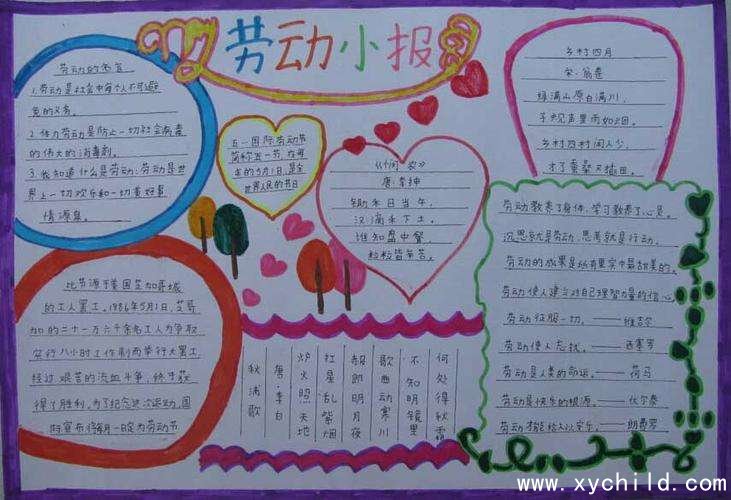 劳动小报
劳动的名言
1.劳动是社会中每个人不可避
免的义务。
2.体力劳动是防止一切社会病毒
的伟大的消毒剂。
3.我知道什么是劳动:劳动是世
界上一切欢乐和一切美好事
情源泉。
五一国际劳动节
简称五一节,在每
年的5月1日,是全
世界人民的节日
《悯农》
唐:李绅
锄禾日当午,
汗滴禾下土。
谁知盘中餐,
粒粒皆辛苦。
乡村四月
宋:翁卷
绿满山原白满川,
子规声里雨如烟。
乡村四月闲人少,
才了蚕桑又插田。
此节源于美国芝加哥城
的工人罢工。1886年5月1日,芝哥
加的二十一万六千余名工人为争取
实行八小时工作制而举行大罢工
经过艰苦的流血斗争,终于获
得了胜利。为了纪念这次运动,国
际宣布将每月一日定为劳动节
秋浦歌
唐:李白
炉火照天地
红星乱紫烟
赧郎明月夜
歌曲动寒川
不知明镜里
何处得秋霜
劳动教养了身体,学习教养了心灵。
沉思就是劳动,思考就是行动。
劳动的成果是所有果实中最甜美的。
劳动使人建立对自己理智力量的信心
劳动征服一切。——维吉尔
劳动使人忘忧。——西塞罗
劳动是人类的命运。——荷马
劳动是快乐的根源。——伏尔泰
劳动才能给人以安乐。——朗费罗
www.xychild.com